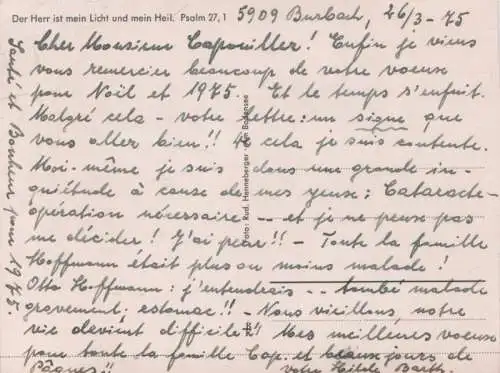 Der Herr ist mein Licht und mein Heil. Psalm 27,1
5909 Burbach, 26/3-75
Cher Monsieur Capouiller! Enfin je viens
vous remercier beaucoup de votre voeuse
pour Noël et 1975. Et le temps s'enfuit.
Malgré cela - votre lettre: un signe que
vous aller bien!! De cela je suis contente.
Moi-même je suis dans une grande in-
quiétude à cause de mes yeuse: Cataracte-
opération nécessaire -- et je ne peuse pas
me décider! J'ai peur!! - Toute la famille
Hoffmann était plus ou moins malade!
Otto Hoffmann: j'entendrais -- tombé malade
gravement; estomac!! - Nous vieillons, notre
vie devient difficile!! Mes meilleures voeuse
pour toute la famille Cap. et beause jours de
Pâques!! votre Hilde Barth.
Santé et Bonheur pour 1975.
Foto: Rud. Henneberger
Bodensee